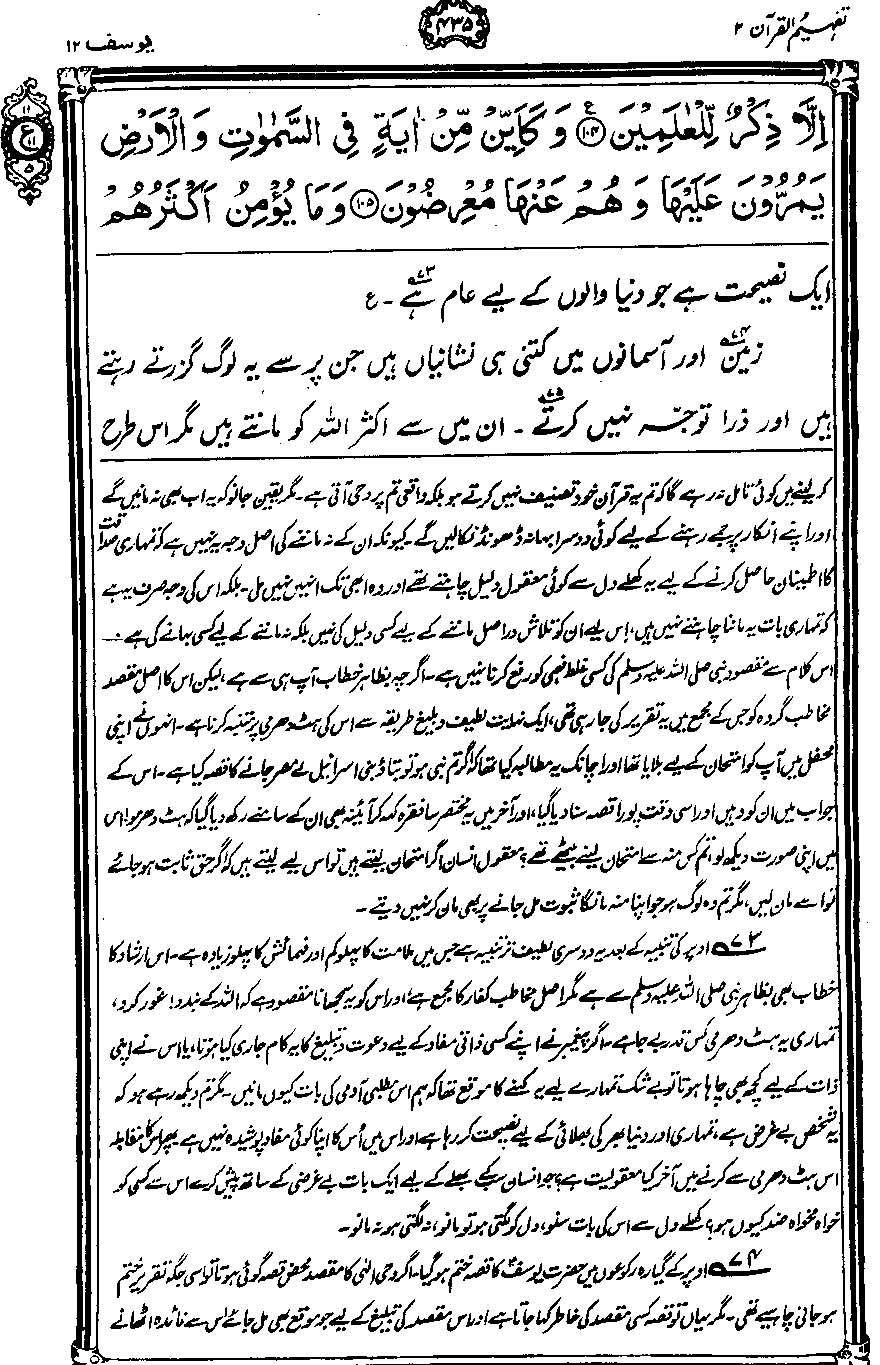 تفہیم القرآن ۲
۴۳۵
یوسف ۱۲
۱۱
ع
۱۱
۵
اِلَّا ذِكْرٌ لِّلْعٰلَمِيْنَ ۝۱۰۴ ع وَ كَاَيِّنْ مِّنْ اٰيَةٍ فِي السَّمٰوٰتِ وَ الْاَرْضِ
يَمُرُّوْنَ عَلَيْهَا وَ هُمْ عَنْهَا مُعْرِضُوْنَ ۝۱۰۵ وَ مَا يُؤْمِنُ اَكْثَرُهُمْ
ایک نصیحت ہے جو دنیا والوں کے لیے عام ہے۷۳۔ ع
زمین۷۴ اور آسمانوں میں کتنی ہی نشانیاں ہیں جن پر سے یہ لوگ گزرتے رہتے
ہیں اور ذرا توجّہ نہیں کرتے۷۵۔ ان میں سے اکثر اللہ کو مانتے ہیں مگر اس طرح
کر لینے میں کوئی تامل نہ رہے گا کہ تم یہ قرآن خود تصنیف نہیں کرتے ہو بلکہ واقعی تم پر وحی آتی ہے۔ مگر یقین جانو کہ یہ اب بھی نہ مانیں گے
اور اپنے انکار پر جمے رہنے کے لیے کوئی دوسرا بہانہ ڈھونڈ نکالیں گے۔ کیونکہ ان کے نہ ماننے کی اصل وجہ یہ نہیں ہے کہ تمہاری صداقت
کا اطمینان حاصل کرنے کے لیے یہ کھلے دل سے کوئی معقول دلیل چاہتے تھے اور وہ ابھی تک انہیں نہیں ملی۔ بلکہ اس کی وجہ صرف یہ ہے
کہ تمہاری بات یہ ماننا چاہتے نہیں ہیں، اس لیے ان کو تلاش دراصل ماننے کے لیے کسی دلیل کی نہیں بلکہ نہ ماننے کے لیے کسی بہانے کی ہے۔
اس کلام سے مقصود نبی صلی اللہ علیہ وسلم کی کسی غلط فہمی کو رفع کرنا نہیں ہے۔ اگرچہ بظاہر خطاب آپ ہی سے ہے، لیکن اس کا اصل مقصد
مخاطب گروہ کو جس کے مجمع میں یہ تقریر کی جا رہی تھی، ایک نہایت لطیف و بلیغ طریقہ سے اس کی ہٹ دھرمی پر متنبہ کرنا ہے۔ انہوں نے اپنی
محفل میں آپ کو امتحان کے لیے بلایا تھا اور اچانک یہ مطالبہ کیا تھا کہ اگر تم نبی ہو تو بتاؤ بنی اسرائیل کے مصر جانے کا قصہ کیا ہے۔ اس کے
جواب میں ان کو وہیں اور اسی وقت پورا قصہ سنا دیا گیا، اور آخر میں یہ مختصر سا فقرہ کہہ کر آئینہ بھی ان کے سامنے رکھ دیا گیا کہ ہٹ دھرمو! اس
میں اپنی صورت دیکھ لو، تم کس منہ سے امتحان لینے بیٹھے تھے؟ معقول انسان اگر امتحان لیتے ہیں تو اس لیے لیتے ہیں کہ اگر حق ثابت ہو جائے
تو اسے مان لیں، مگر تم وہ لوگ ہو جو اپنا منہ مانگا ثبوت مل جانے پر بھی مان کر نہیں دیتے۔
۷۳ اوپر کی تنبیہ کے بعد یہ دوسری لطیف تر تنبیہ ہے جس میں ملامت کا پہلو کم اور فہمائش کا پہلو زیادہ ہے۔ اس ارشاد کا
خطاب بھی بظاہر نبی صلی اللہ علیہ وسلم سے ہے مگر اصل مخاطب کفار کا مجمع ہے اور اس کو یہ سمجھانا مقصود ہے کہ اللہ کے بندو! غور کرو،
تمہاری یہ ہٹ دھرمی کس قدر بے جا ہے۔ اگر پیغمبر نے اپنے کسی ذاتی مفاد کے لیے دعوت و تبلیغ کا یہ کام جاری کیا ہوتا، یا اس نے اپنی
ذات کے لیے کچھ بھی چاہا ہوتا تو بے شک تمہارے لیے یہ کہنے کا موقع تھا کہ ہم اس مطلبی آدمی کی بات کیوں مانیں۔ مگر تم دیکھ رہے ہو کہ
یہ شخص بے غرض ہے، تمہاری اور دنیا بھر کی بھلائی کے لیے نصیحت کر رہا ہے اور اس میں اُس کا اپنا کوئی مفاد پوشیدہ نہیں ہے۔ پھر اس کا مقابلہ
اس ہٹ دھرمی سے کرنے میں آخر کیا معقولیت ہے؟ جو انسان سب کے بھلے کے لیے ایک بات بے غرضی کے ساتھ پیش کرے اس سے کسی کو
خواہ مخواہ ضد کیوں ہو؟ کھلے دل سے اس کی بات سنو، دل کو لگتی ہو تو مانو، نہ لگتی ہو نہ مانو۔
۷۴ اوپر کے گیارہ رکوعوں میں حضرت یوسفؑ کا قصہ ختم ہو گیا۔ اگر وحی الٰہی کا مقصد محض قصہ گوئی ہوتا تو اسی جگہ تقریر ختم
ہو جانی چاہیے تھی۔ مگر یہاں تو قصہ کسی مقصد کی خاطر کہا جاتا ہے اور اس مقصد کی تبلیغ کے لیے جو موقع بھی مل جائے اس سے فائدہ اٹھانے